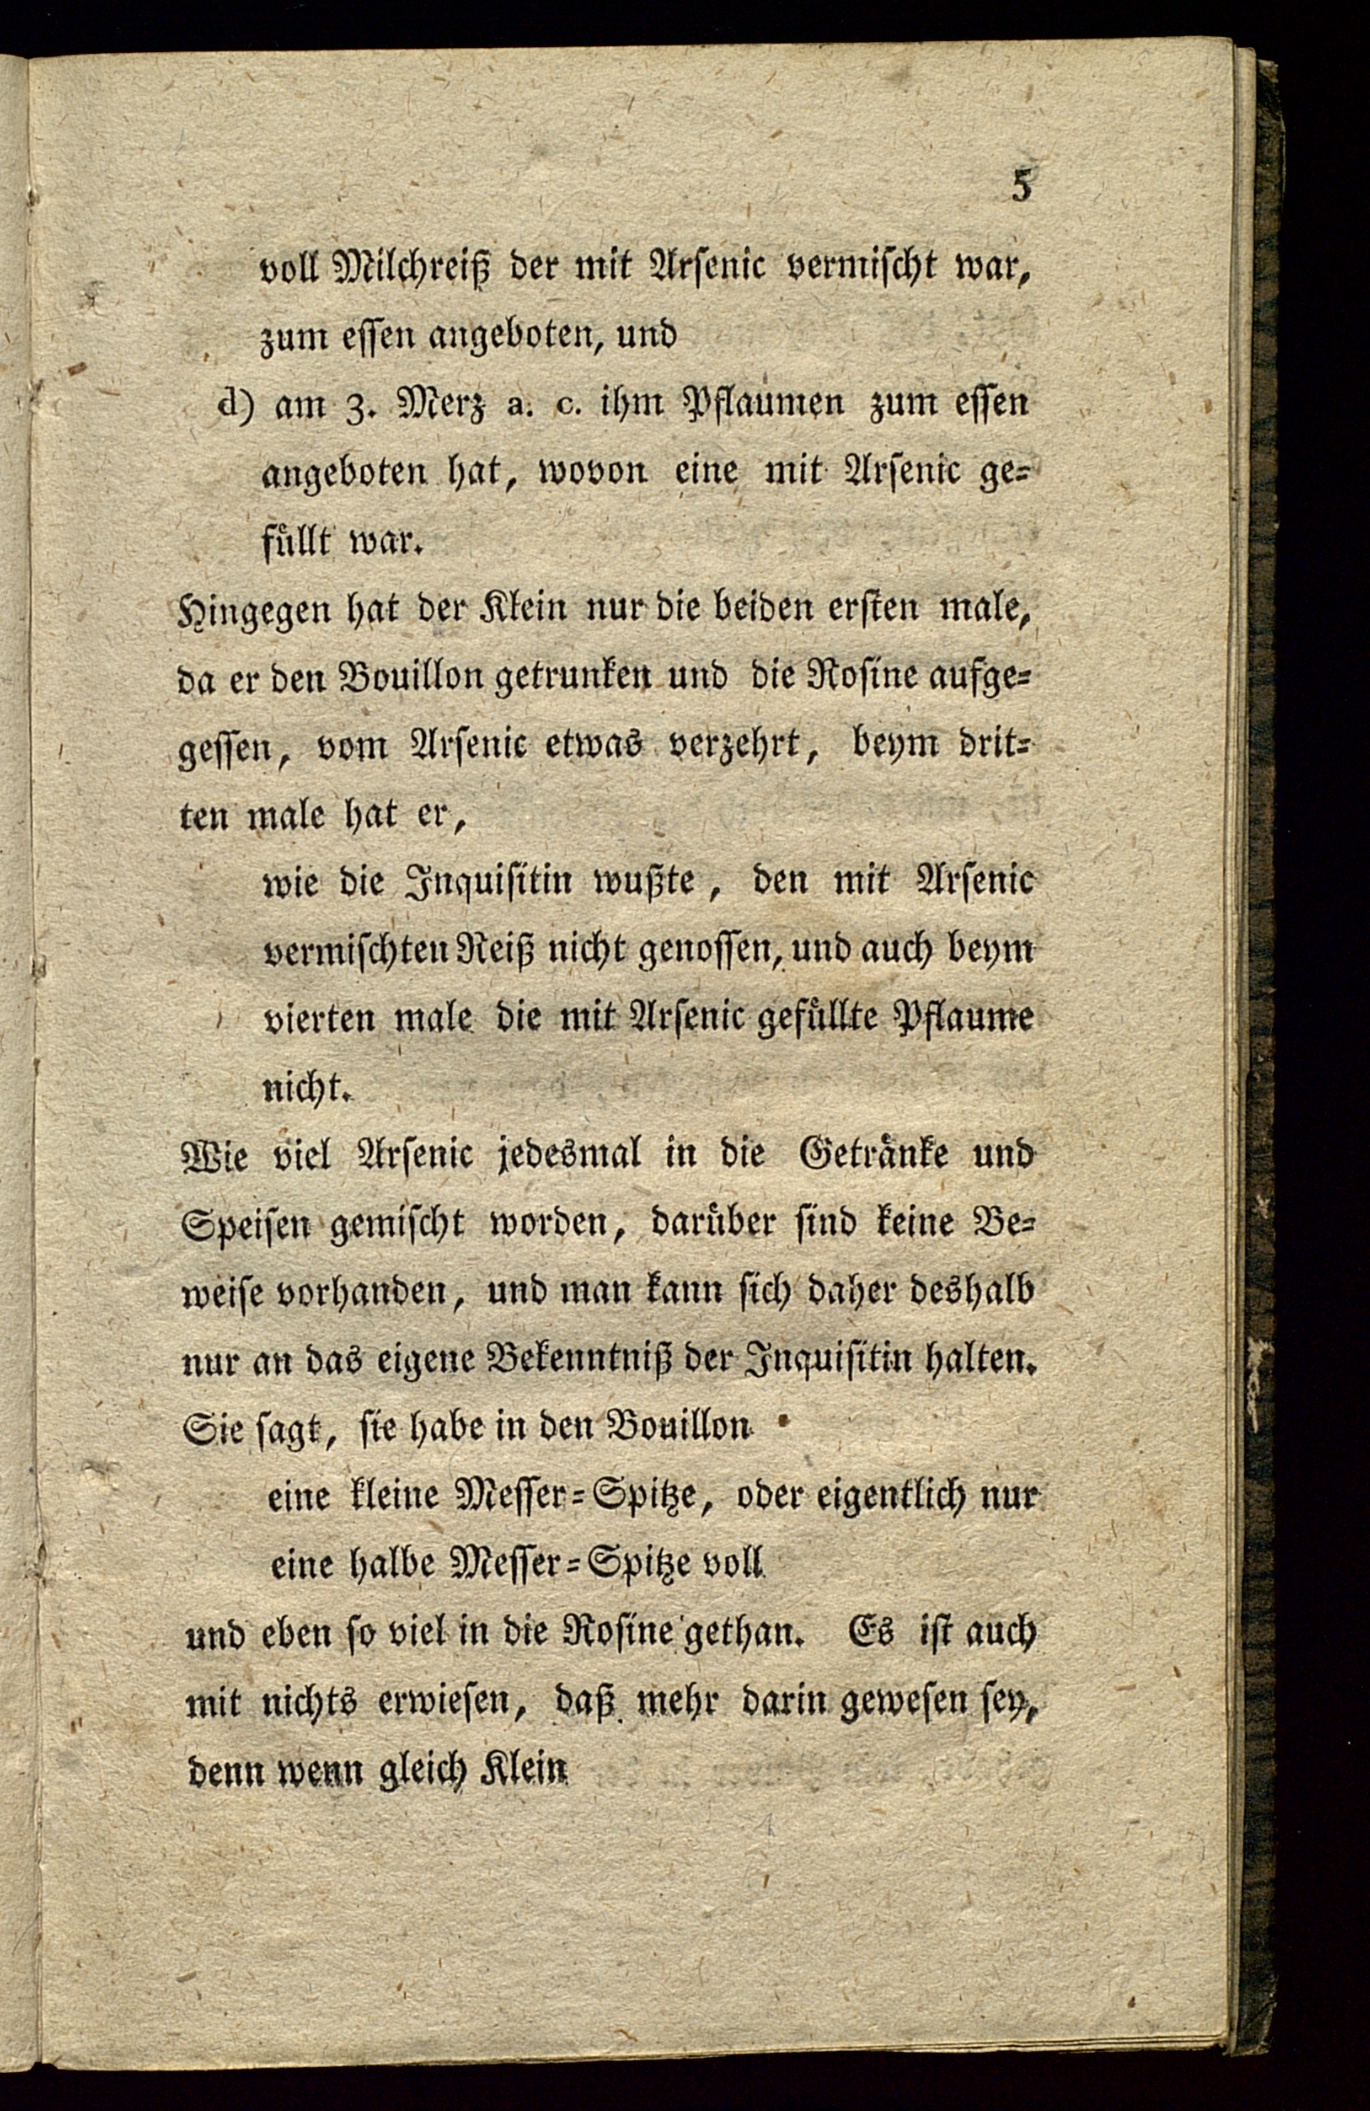 5
voll Milchreiß der mit Arsenic vermischt war,
zum essen angeboten, und
d) am 3. Merz a. c. ihm Pflaumen zum essen
angeboten hat, wovon eine mit Arsenic ge-
füllt war.
Hingegen hat der Klein nur die beiden ersten male,
da er den Bouillon getrunken und die Rosine aufge-
gessen, vom Arsenic etwas verzehrt, beym drit-
ten male hat er,
wie die Inquisitin wußte, den mit Arsenic
vermischten Reiß nicht genossen, und auch beym
vierten male die mit Arsenic gefüllte Pflaume
nicht.
Wie viel Arsenic jedesmal in die Getränke und
Speisen gemischt worden, darüber sind keine Be-
weise vorhanden, und man kann sich daher deshalb
nur an das eigene Bekenntniß der Inquisitin halten.
Sie sagt, sie habe in den Bouillon
eine kleine Messer-Spitze, oder eigentlich nur
eine halbe Messer-Spitze voll
und eben so viel in die Rosine gethan. Es ist auch
mit nichts erwiesen, daß mehr darin gewesen sey,
denn wenn gleich Klein